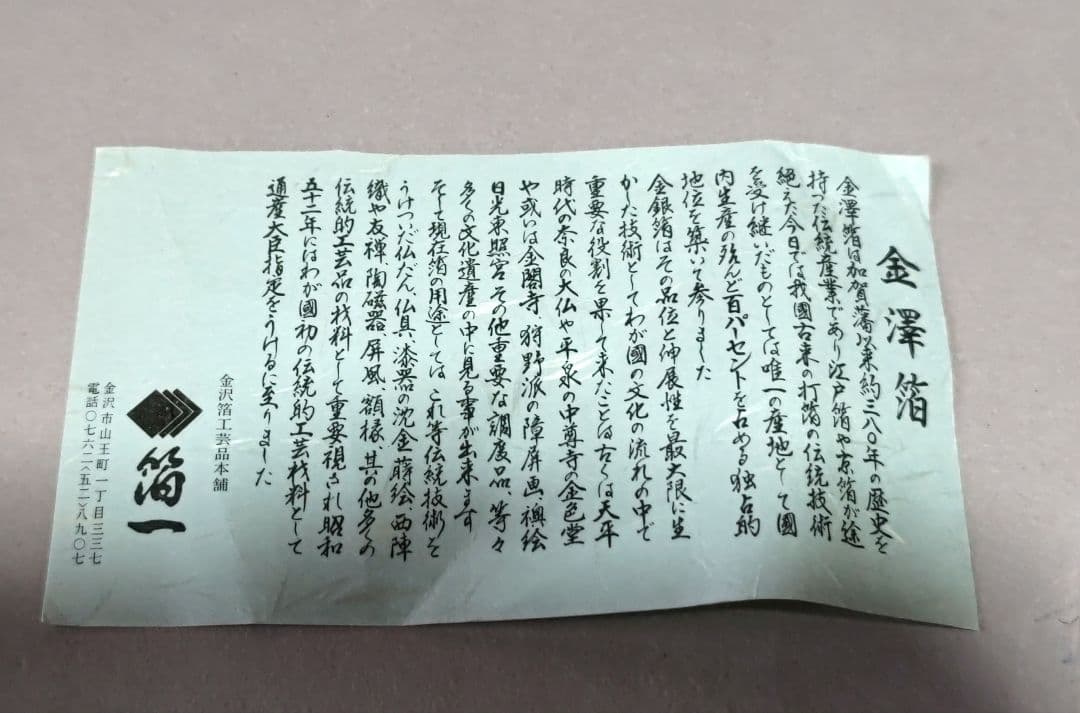 金澤箔
金澤箔は加賀藩以来約三八〇年の歴史を
持つた伝統産業であり江戸箔や京箔が途
絶えた今日では我國古来の打箔の伝統技術
を受け継いだものとしては唯一の産地として國
内生産の殆んど百パーセントを占める独占的
地位を築いて参りました
金銀箔はその品位と伸展性を最大限に生
かした技術としてわが國の文化の流れの中で
重要な役割を果して来たことは古くは天平
時代の奈良の大仏や平泉の中尊寺の金色堂
や或いは金閣寺、狩野派の障屏画、襖絵
日光東照宮その他重要な調度品、等々
多くの文化遺産の中に見る事が出来ます
そして現在箔の用途としては、これ等伝統技術を
うけついだ仏だん、仏具、漆器の沈金、蒔絵、西陣
織や友禅、陶磁器、屏風、額様、其の他多くの
伝統的工芸品の材料として重要視され昭和
五十二年にはわが國初の伝統的工芸材料として
通産大臣指定をうけるに至りました
金沢箔工芸品本舗
箔一
金沢市山王町一丁目三三七
電話〇七六二(五二)八九〇七